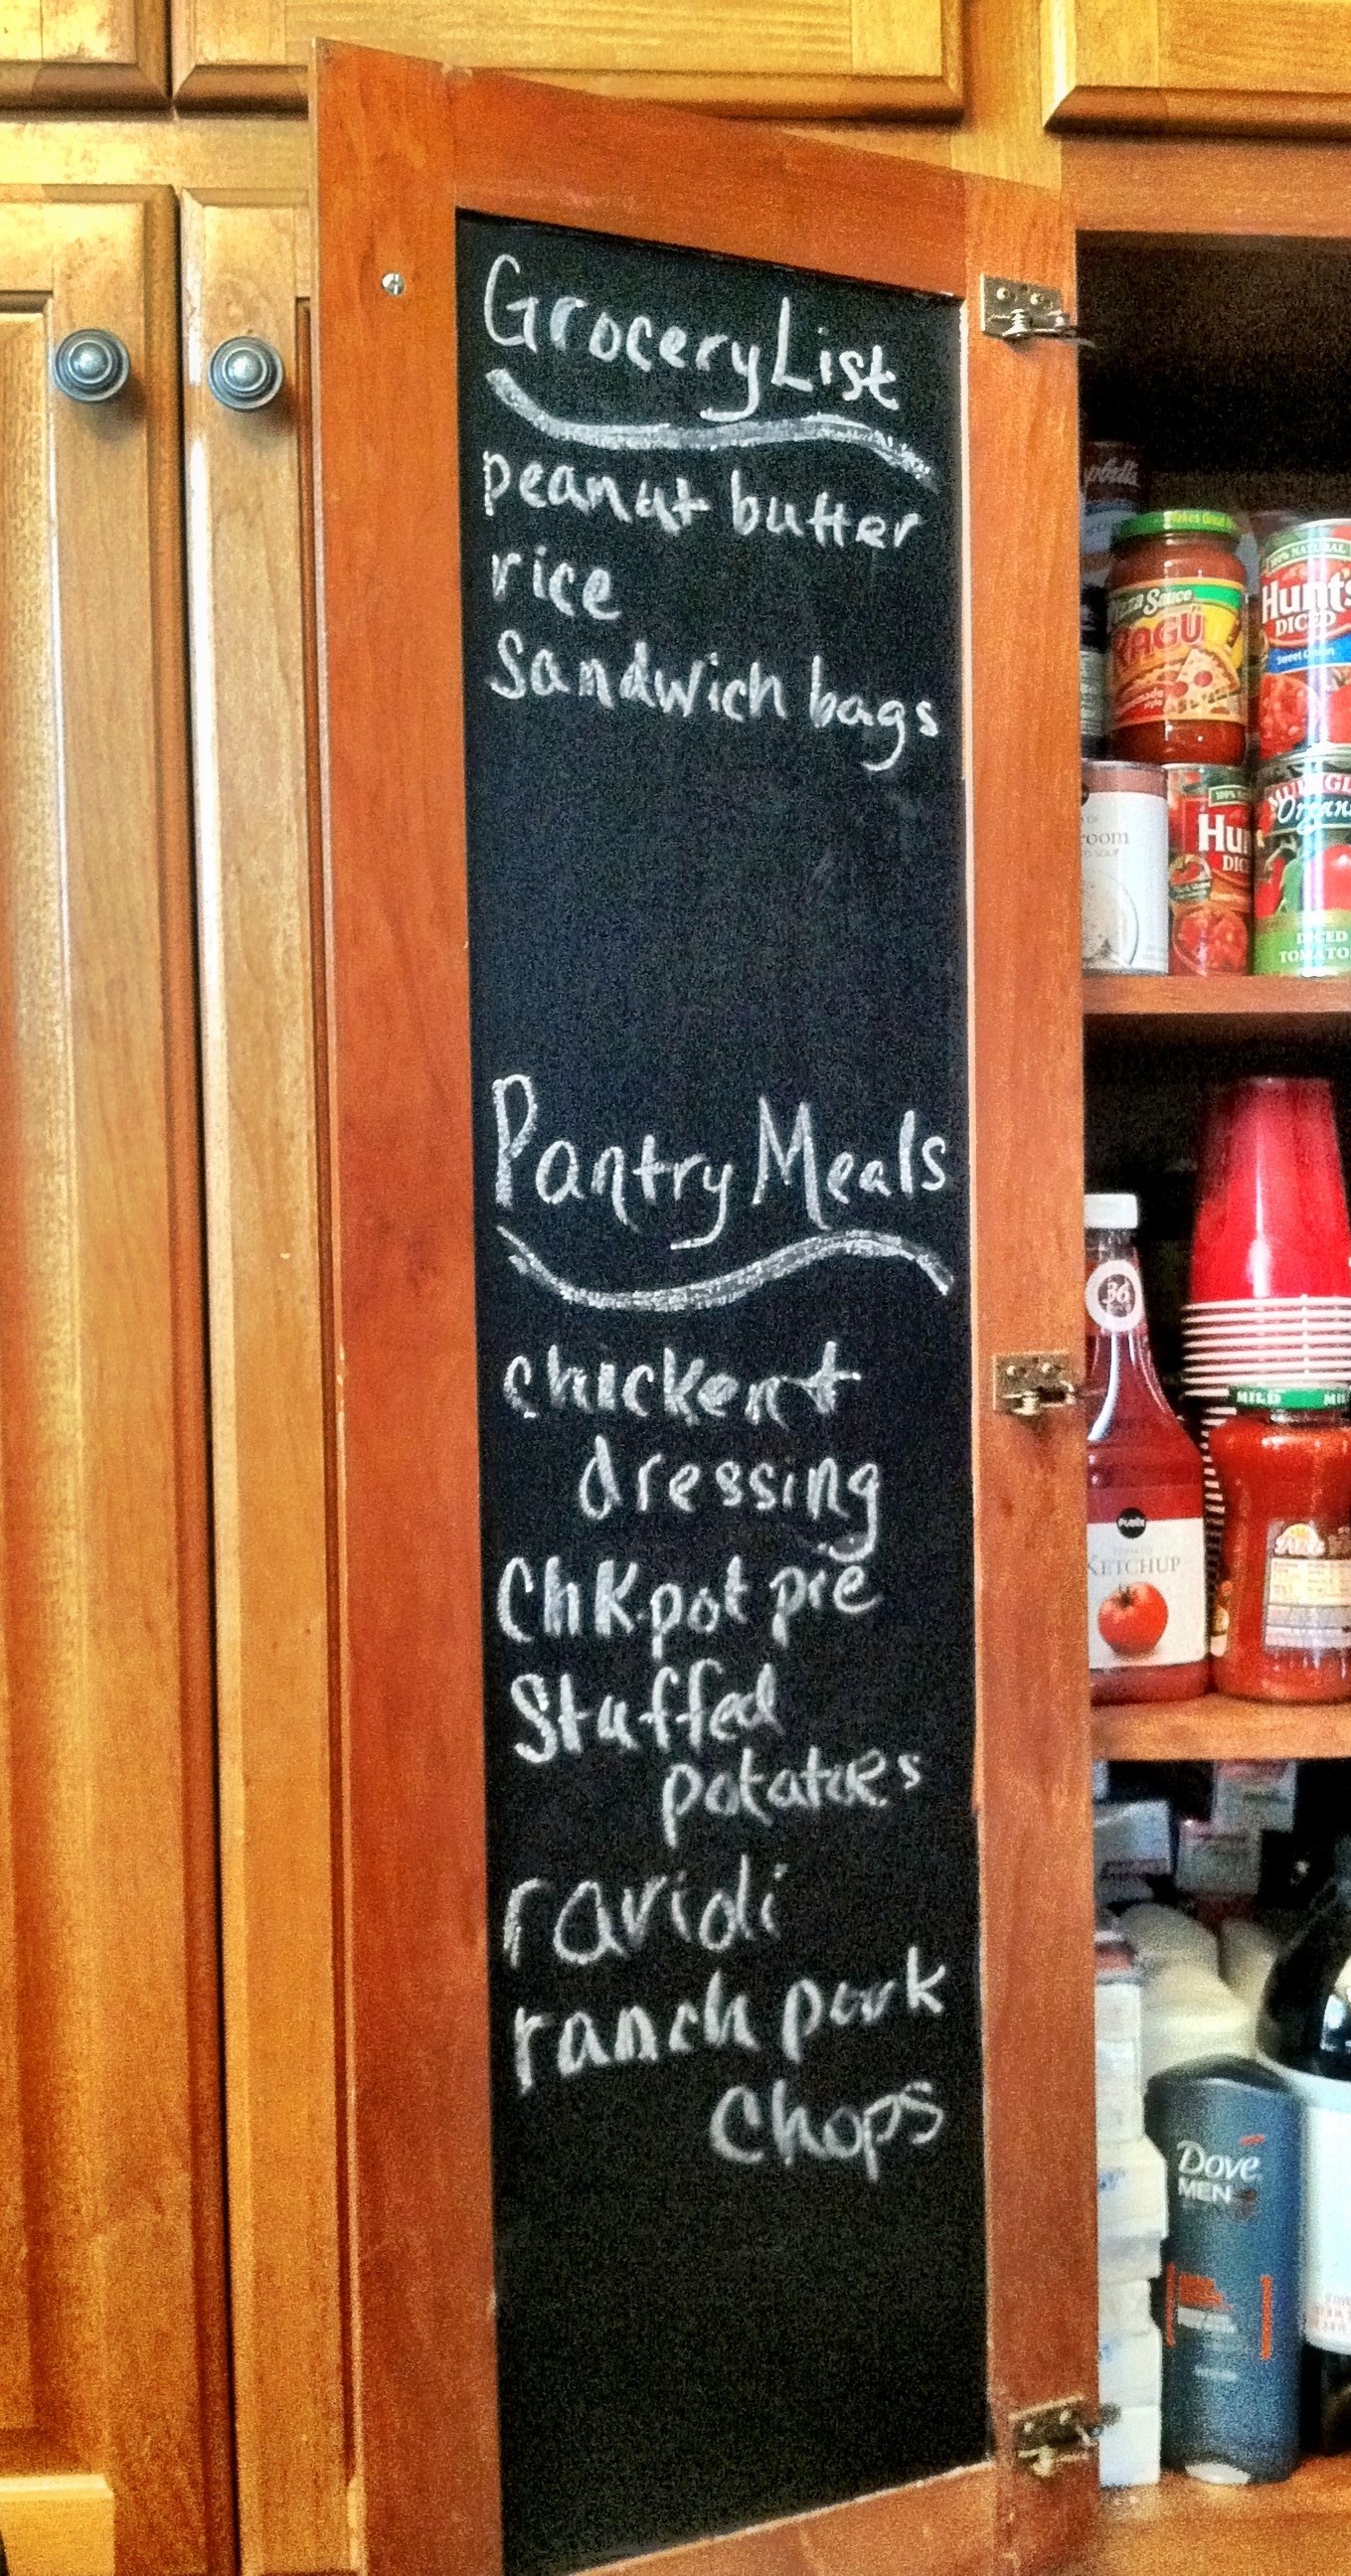 Grocery List
peanut butter
rice
Sandwich bags
Pantry Meals
chicken +
dressing
Chk pot pie
Stuffed
potatoes
ravioli
ranch pork
chops
Pizza Sauce
RAGÚ
100% NATURAL
Hunt's
DICED
Sweet Onion
Organ
DICED
TOMATO
36
MILD
Publix
KETCHUP
DOVE
MEN